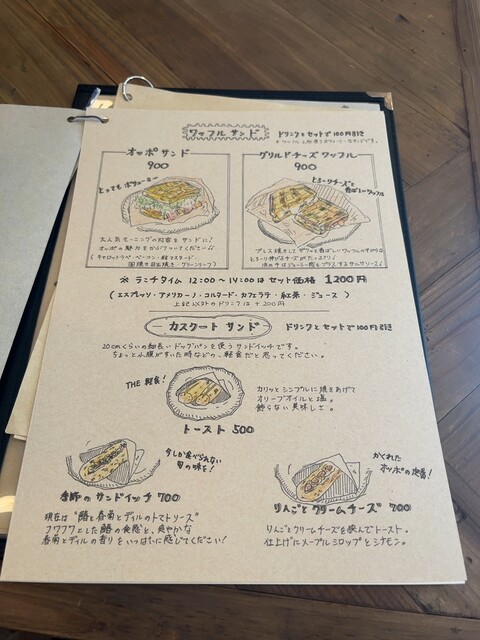 ワッフル サンド
ドリンクとセットで100円引き
オッポ サンド
900
とっても ボリューミー
大人気モーニングの内容をサンドに!
オッポの魅力をからアップてください
(キャロットラペ・ベーコン・粒マスタード
国産の目玉焼き・グリーンリーフ)
グリルドチーズ ワッフル
900
とろーりチーズと
香ばしワッフル
プレス焼きして
とろーり伸びるチーズがたっぷり♪
※ ランチタイム 12:00 〜 14:00 は セット価格 1,200円
(エスプレッソ・アメリカーノ・コルタード・カフェラテ・紅茶・ジュース)
上記以外のドリンクは +200円
カスクート サンド
ドリンクとセットで100円引き
20cmくらいの細長いドッグパンを使うサンドイッチです。
ちょっと小腹がすいた時などの、軽食だと思ってください。
THE 軽食!
カリッとシンプルに焼きあげて
オリーブオイルと塩。
飾らない美味しさ。
トースト 500
今しか食べられない
旬の味を!
季節の サンドイッチ 700
現在は
春菊とディルのトマトソース"
フワフワとした
の食感と、爽やかな
春菊とディルの香りをいっぱいに感じてください!
かくれた
オッポの定番!
りんごとクリームチーズ 700
りんごとクリームチーズを挟んでトースト。
仕上げにメープルシロップとシナモン。